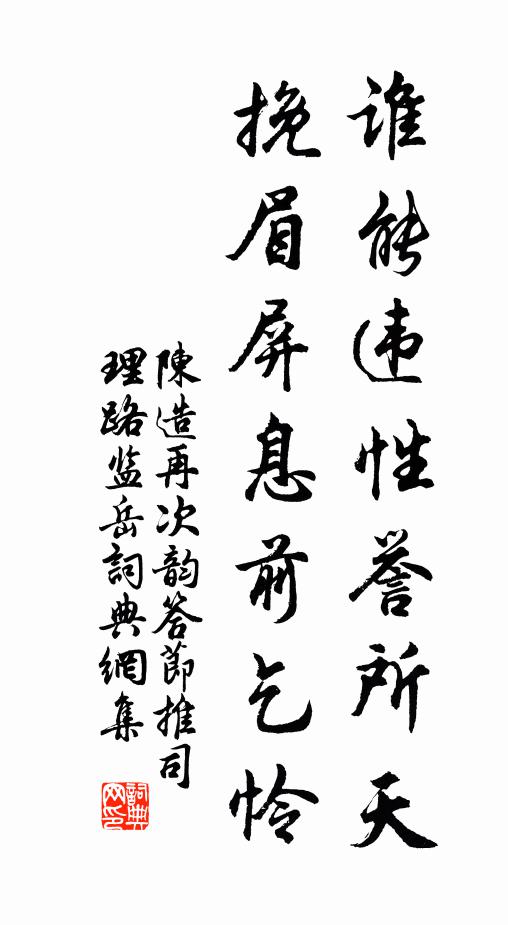 谁能违性誉所天
挽眉屏息前乞怜
陳造再次韵答節推司
理路监岳詞典網集
詞典网印